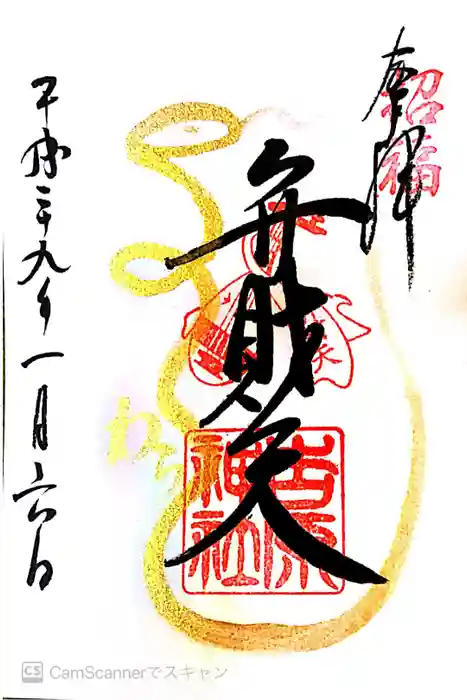 奉拝
招福
弁財天
吉原
神社
平成二十九年一月六日
CS CamScannerでスキャン